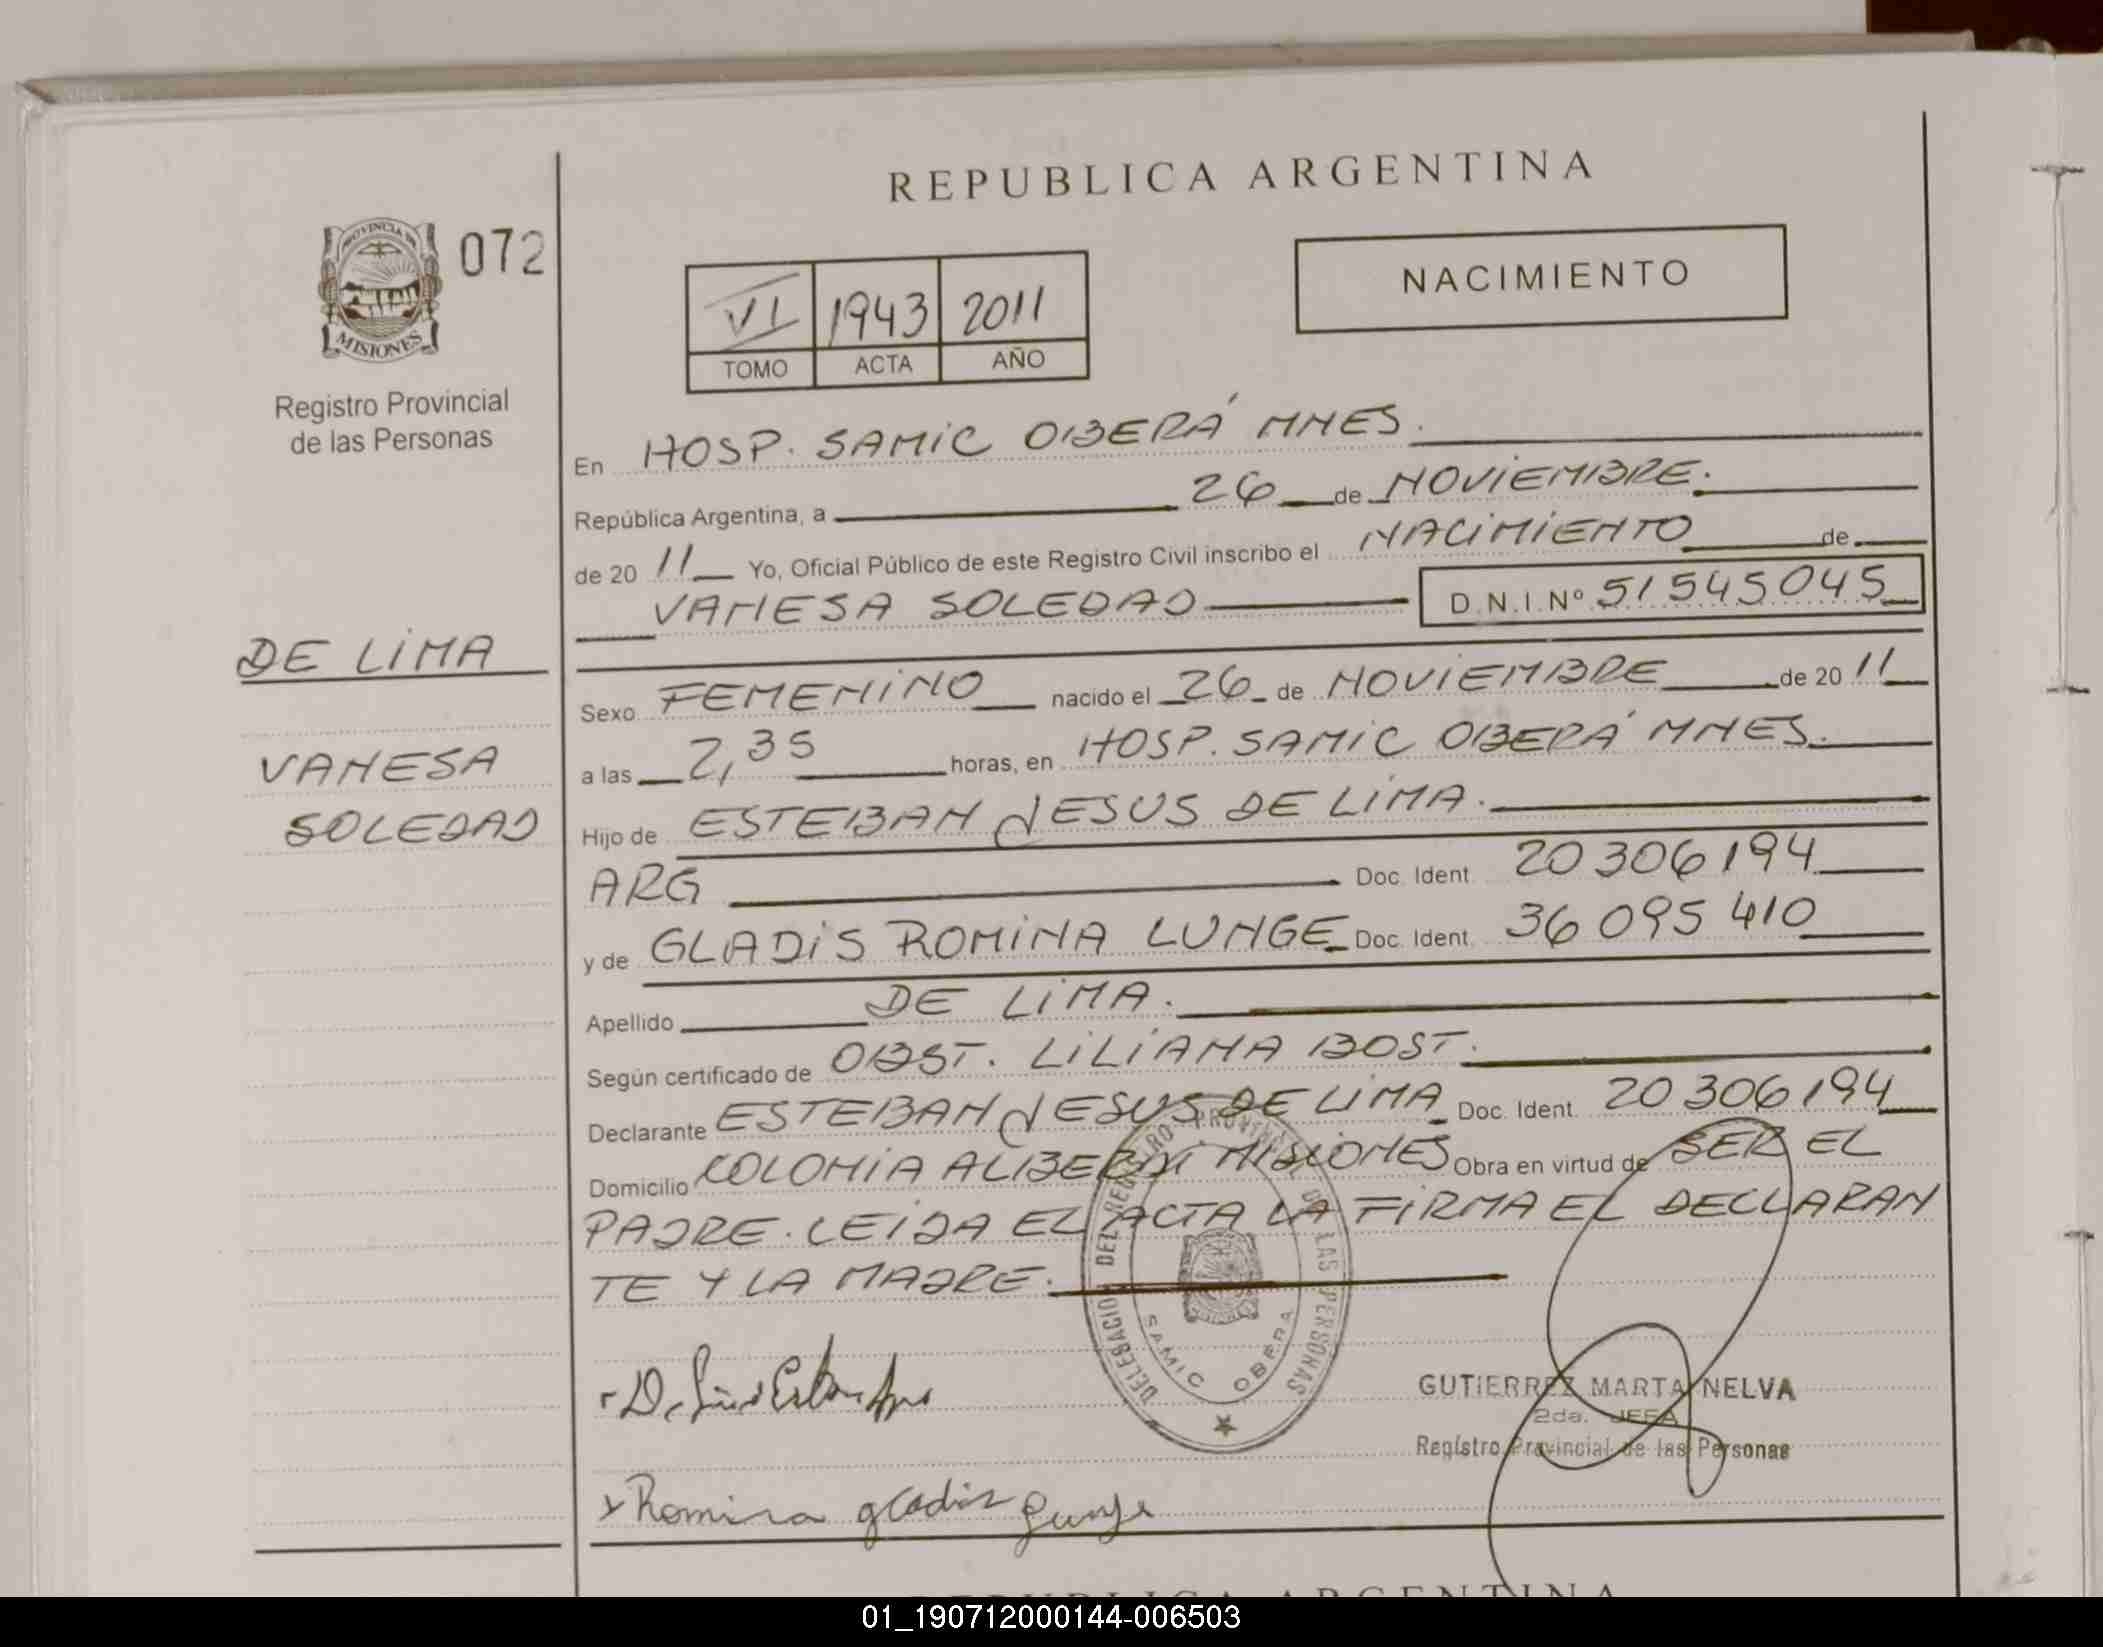 REPUBLICA ARGENTINA
PROVINCIA DE
MISIONES
072
Registro Provincial
de las Personas
NACIMIENTO
VI 1943 2011
TOMO ACTA AÑO
En HOSP. SAMIC OBERÁ MNES.
República Argentina, a 26 de NOVIEMBRE.
de 20 11 Yo, Oficial Público de este Registro Civil inscribo el NACIMIENTO de
VANESA SOLEDAD D.N.I. Nº 51545045
DE LIMA
VANESA
SOLEDAD
Sexo FEMENINO nacido el 26 de NOVIEMBRE de 20 11
a las 2,35 horas, en HOSP. SAMIC OBERÁ MNES.
Hijo de ESTEBAN JESUS DE LIMA.
ARG Doc. Ident. 20306194
y de GLADIS ROMINA LUNGE Doc. Ident. 36095410
Apellido DE LIMA.
Según certificado de OBST. LILIANA BOST.
Declarante ESTEBAN JESUS DE LIMA Doc. Ident. 20306194
Domicilio COLONIA ALBERDI MISIONES Obra en virtud de SER EL
PADRE. LEIDA EL ACTA LA FIRMA EL DECLARAN
TE Y LA MADRE.
DELEGACION DEL REGISTRO PROVINCIAL DE LAS PERSONAS
SAMIC OBERA
GUTIERREZ MARTA NELVA
2da. JEFA
Registro Provincial de las Personas
Romina gladis Lunge
REPUBLICA ARGENTINA
01_190712000144-006503